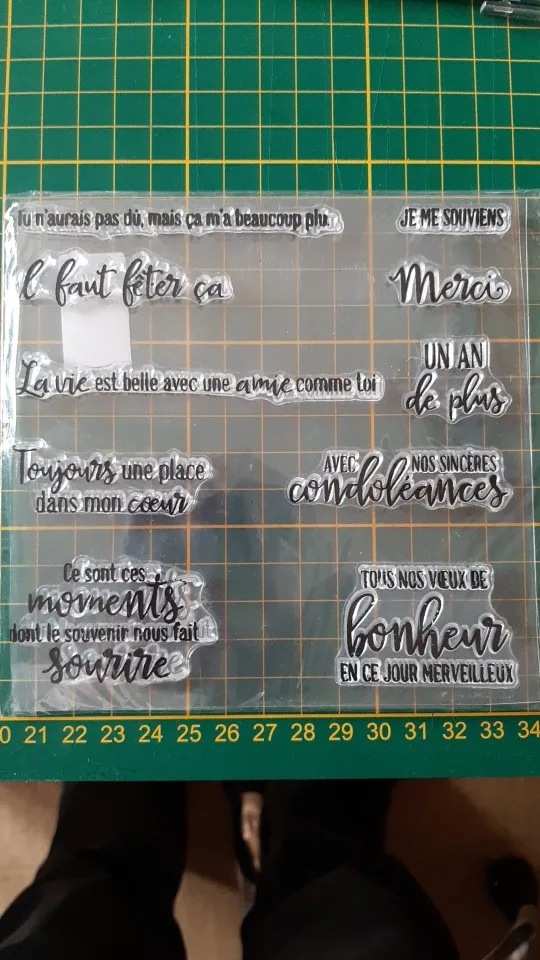 Tu n'aurais pas dû, mais ça m'a beaucoup plu
JE ME SOUVIENS
Il faut fêter ça
Merci
La vie est belle avec une amie comme toi
UN AN
de plus
Toujours une place
dans mon coeur
AVEC NOS SINCÈRES
condoléances
Ce sont ces
moments
dont le souvenir nous fait
sourire
TOUS NOS VŒUX DE
bonheur
EN CE JOUR MERVEILLEUX
0 21 22 23 24 25 26 27 28 29 30 31 32 33 34